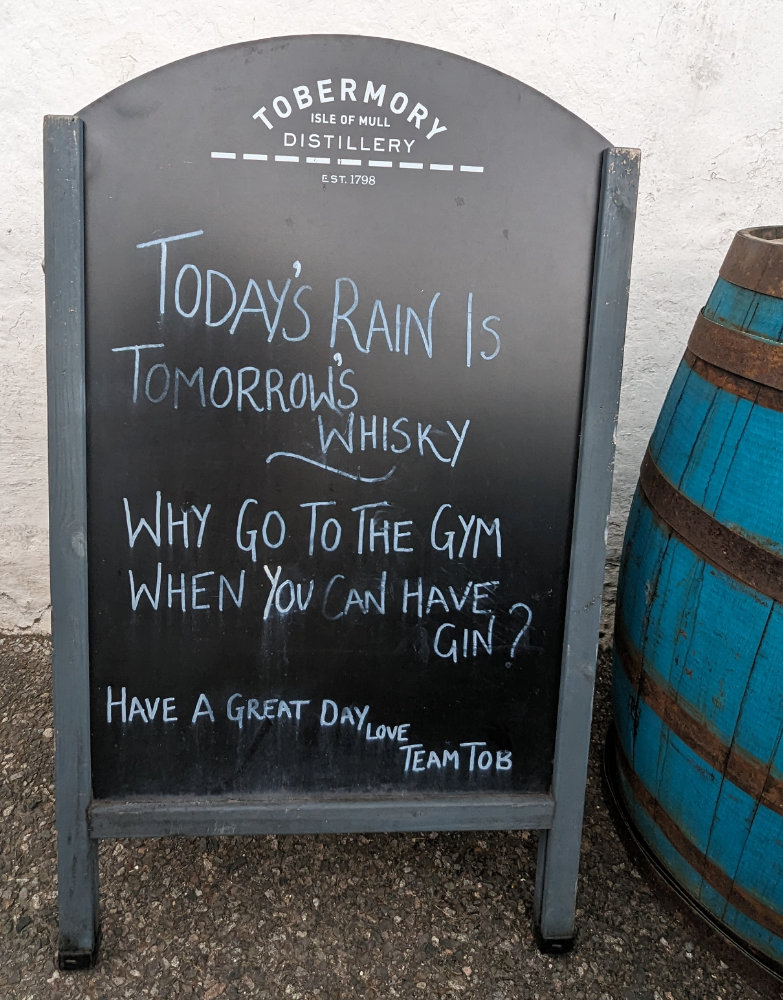 TOBERMORY
ISLE OF MULL
DISTILLERY
EST. 1798
TODAY'S RAIN IS
TOMORROW'S
WHISKY
WHY GO TO THE GYM
WHEN YOU CAN HAVE
GIN?
HAVE A GREAT DAY
LOVE
TEAM TOB